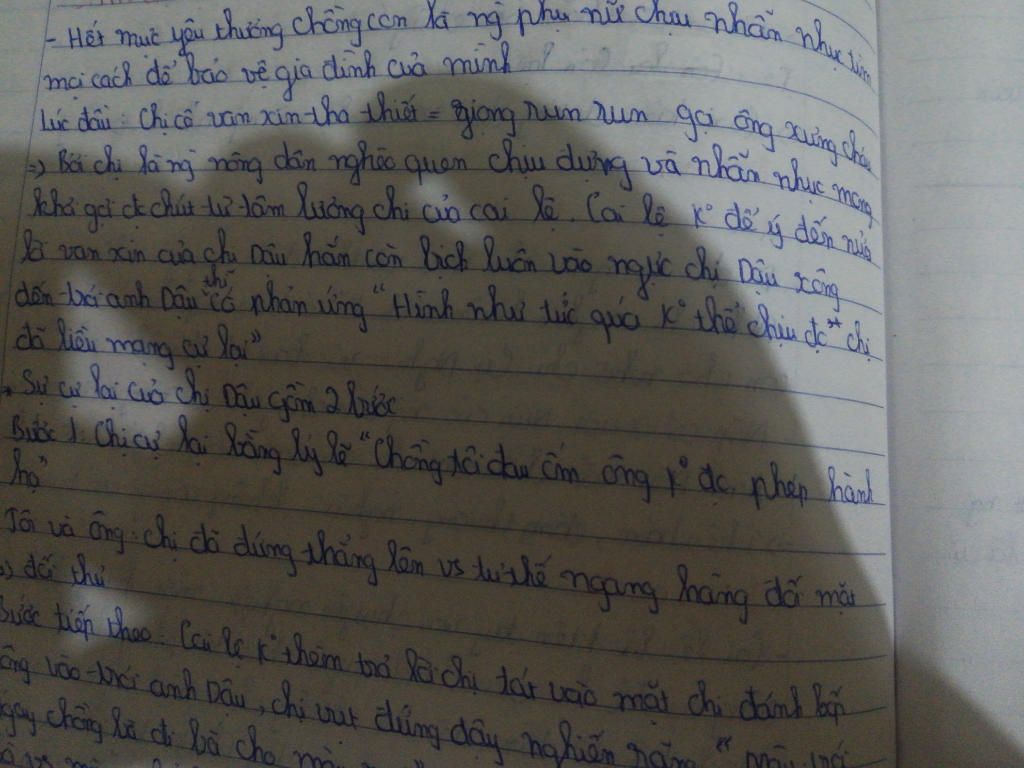 - Hết mực yêu thương chồng con là ng phụ nữ chịu nhẫn nhục tìm
mọi cách để bảo vệ gia đình của mình
Lúc đầu: Chị cố van xin tha thiết = giọng run run gọi ông xưng cháu
=> Bởi chị là ng nông dân nghèo quen chịu đựng và nhẫn nhục mong
khơi gợi chút từ tâm lương chi của cai lệ. Cai lệ k° để ý đến nửa
lời van xin của chị Dậu hắn còn bịch luôn vào ngực chị Dậu xông
đến trói anh Dậu thì có phản ứng "Hình như tức quá k° thể chịu đc chị
đã liều mạng cự lại"
Sự cự lại của chị Dậu gồm 2 bước
Bước 1: Chị cự lại bằng lý lẽ "Chồng tôi đau ốm ông k° đc phép hành
hạ"
Tôi và ông: chị đã đứng thẳng lên vs tư thế ngang hàng đối mặt
=> đối thủ
Bước tiếp theo: Cai lệ k° thèm trả lời chị tát vào mặt chị đánh bốp
vào trói anh Dậu, chị vụt đứng dậy nghiến răng "mày trói
ngay chồng bà đi bà cho mày